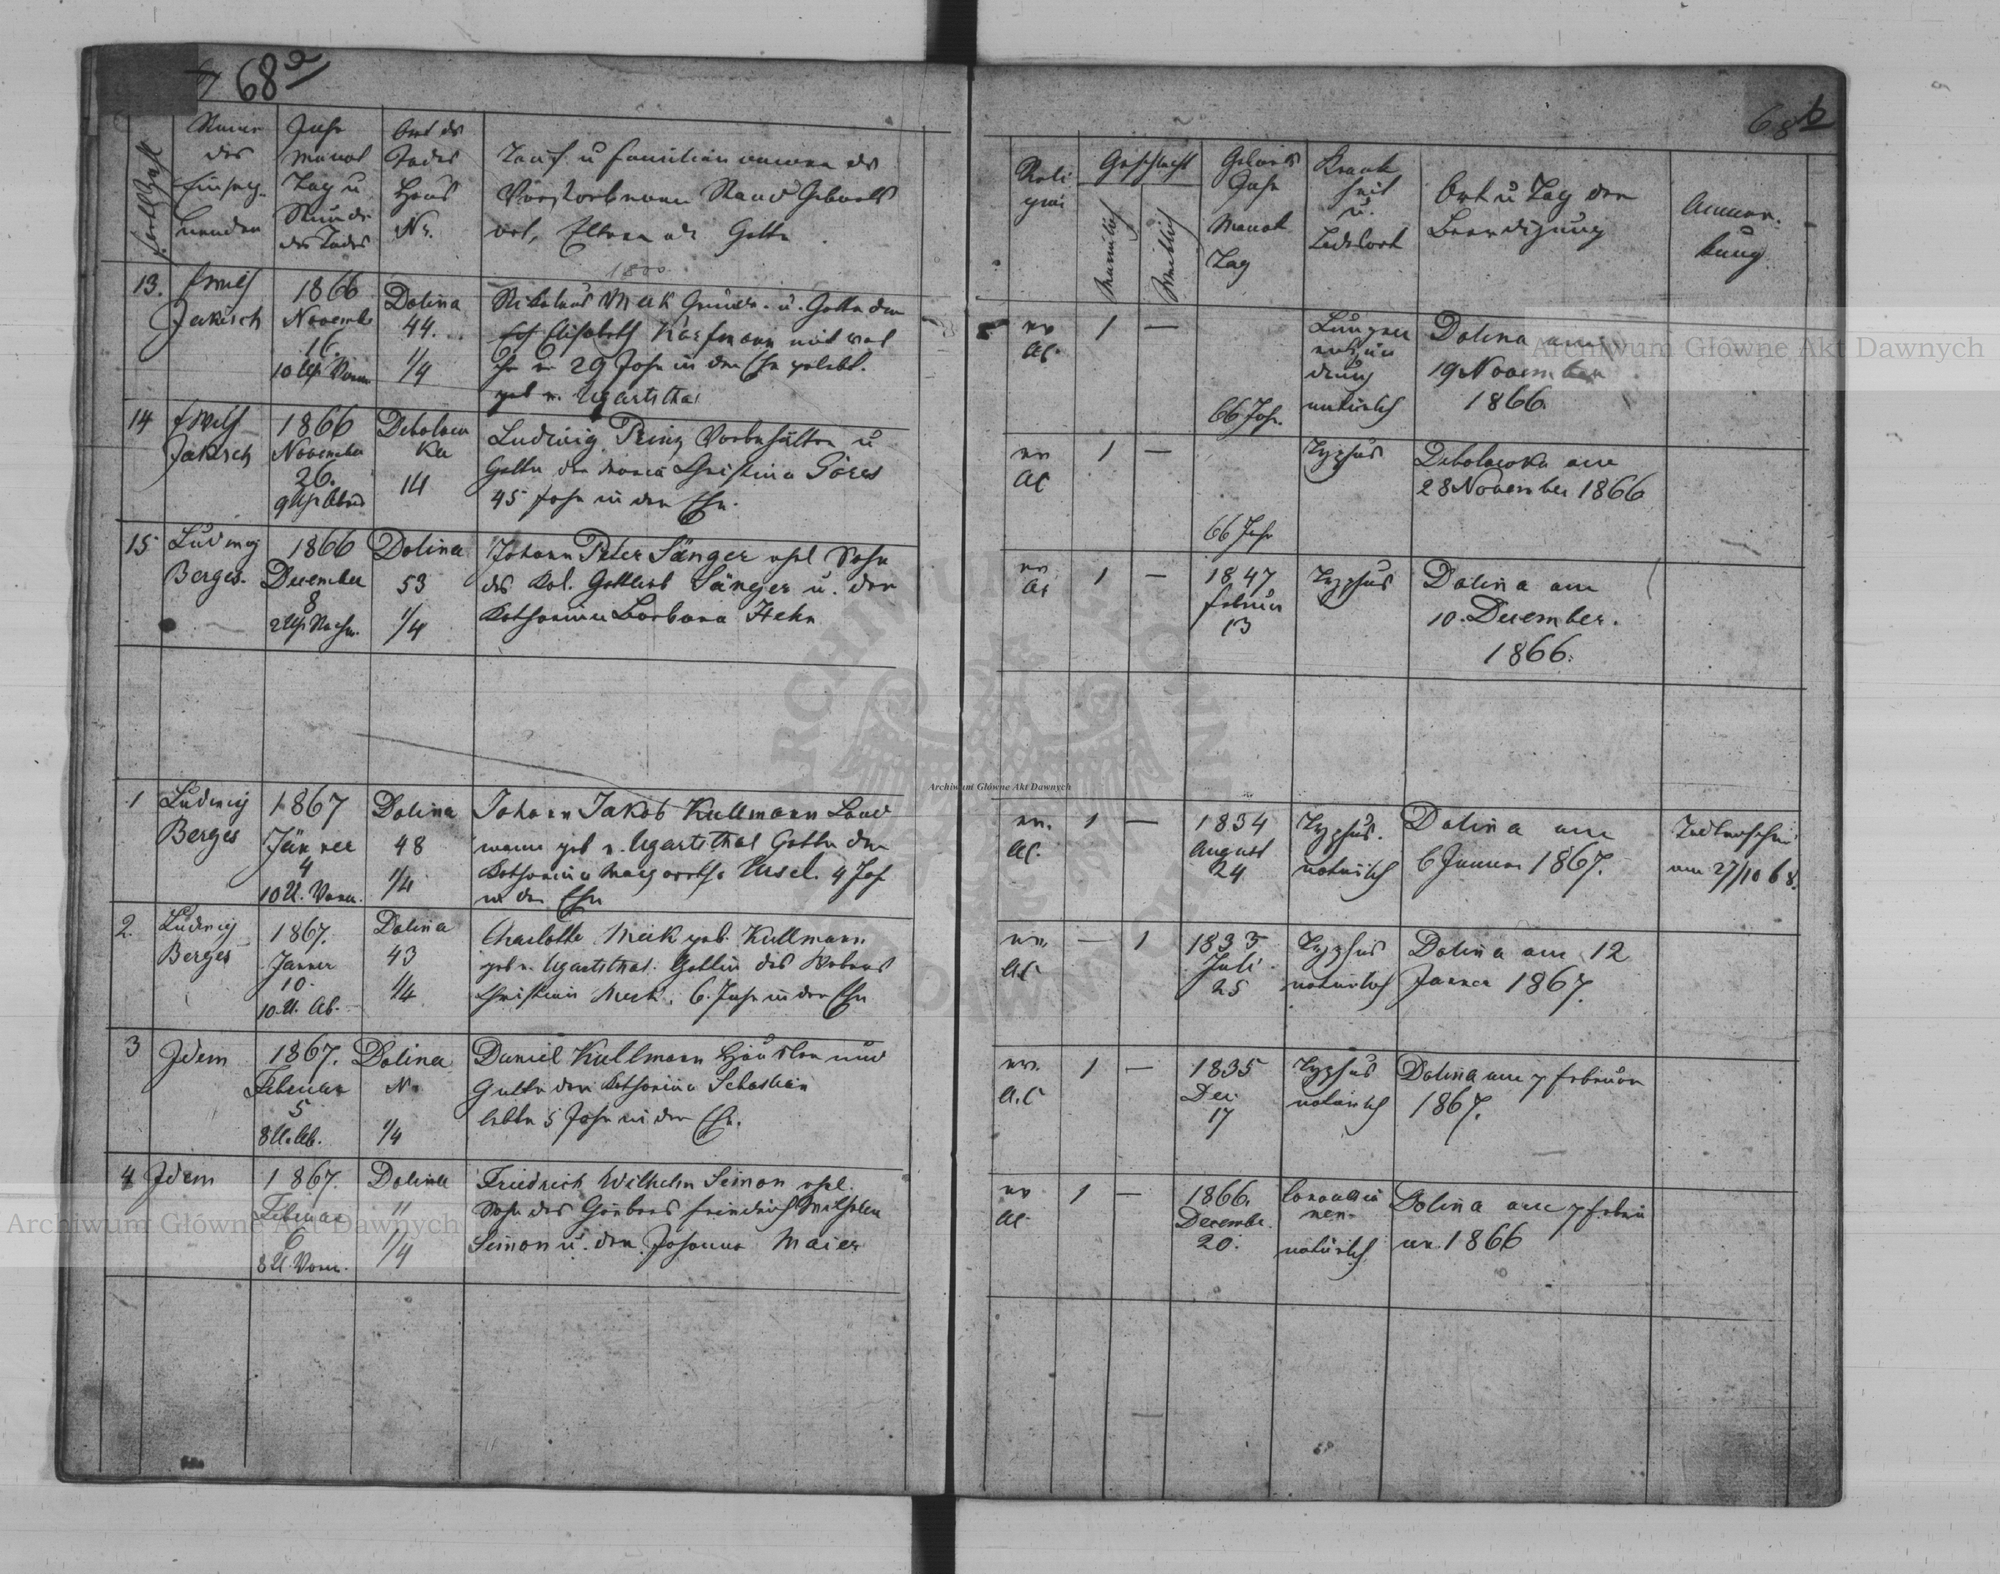 68a
Fortlfzahl
Name
des
Einseg-
nenden
Jahr
Monat
Tag u
Stunde
des Todes
Ort des
Todes
Haus
Nr.
Tauf u Familien namen des
Verstorbenen Stand Geburts
ort, Eltern od. Gatte
1800
13.
Emil
Jakisch
1866
Novemb
16.
10 Uhr Vorm
Dolina
44.
1/4
Nikolaus Meck Grundr. u. Gatte der
Elisabeth Kaufmann mit
29 Jahr in der Ehe gelebt.
geb. v. Ugartsthal
14
Emil
Jakisch
1866
November
26.
9 Uhr Abnd
Debolow
ka
14
Ludwig Prinz Vorbehälter u
Gatte der Maria Christina Göres
45 Jahr in der Ehe.
15
Ludwig
Berges.
1866
December
8
2 Uhr Nachm.
Dolina
53
1/4
Johann Peter Sänger ehel Sohn
des Kol. Gottlieb Sänger u. der
Katharina Barbara Hehn
1
Ludwig
Berges
1867
Jänner
4
10 U. Vorm.
Dolina
48
1/4
Johann Jakob Kullmann Land
mann geb v. Ugartsthal Gatte der
Katharina Margaretha Ursel. 4 Jah
in der Ehe
2.
Ludwig
Berges
1867.
Janner
10.
10 U. Ab.
Dolina
43
1/4
Charlotte Meck geb. Kullmann
geb v. Ugartsthal. Gattin des Webers
Christian Meck. 6. Jahr in der Ehe
3
Idem
1867.
Februar
5
8 U. Ab.
Dolina
N
1/4
Daniel Kullmann Häusler und
Gatte der Katharina Sebastian
lebte 5 Jahr in der Ehe.
4
Idem
1867.
Februar
6
8 U. Vorm.
Dolina
11
1/4
Friedrich Wilhelm Seimon ehel.
Sohn des Gerbers Friedrich Wilhelm
Seimon u. der Johanna Maier
68b
Reli
gion
Geschlecht
Männlich
Weiblich
Geburts
Jahr
Monat
Tag
Krank
heit
u.
Todesart
Ort u Tag der
Beerdigung
Anmer-
kung
ev
AC.
1
—
66 Jahr.
Lungen
entzün
dung
natürlich
Dolina am
19 November
1866.
ev
AC
1
—
66 Jahr
Typhus
Debolowka am
28 November 1866
ev
AC
1
—
1847
Februar
13
Typhus
Dolina am
10. December.
1866.
ev.
AC.
1
—
1834
August
24
Typhus.
natürlich
Dolina am
6 Januar 1867.
Todtenschein
am 27/10 68.
ev.
AC
—
1
1833
Juli
25
Typhus
natürlich
Dolina am 12
Janner 1867.
ev.
A.C
1
—
1835
Dec.
17
Typhus
natürlich
Dolina am 7 Februar
1867.
ev
AC.
1
—
1866.
Decembr.
20.
natürlich
Dolina am 7 Febru
ar. 1866
Archiwum Główne Akt Dawnych
Archiwum Główne Akt Dawnych
Archiwum Główne Akt Dawnych
ARCHIWUM GŁÓWNE AKT DAWNYCH